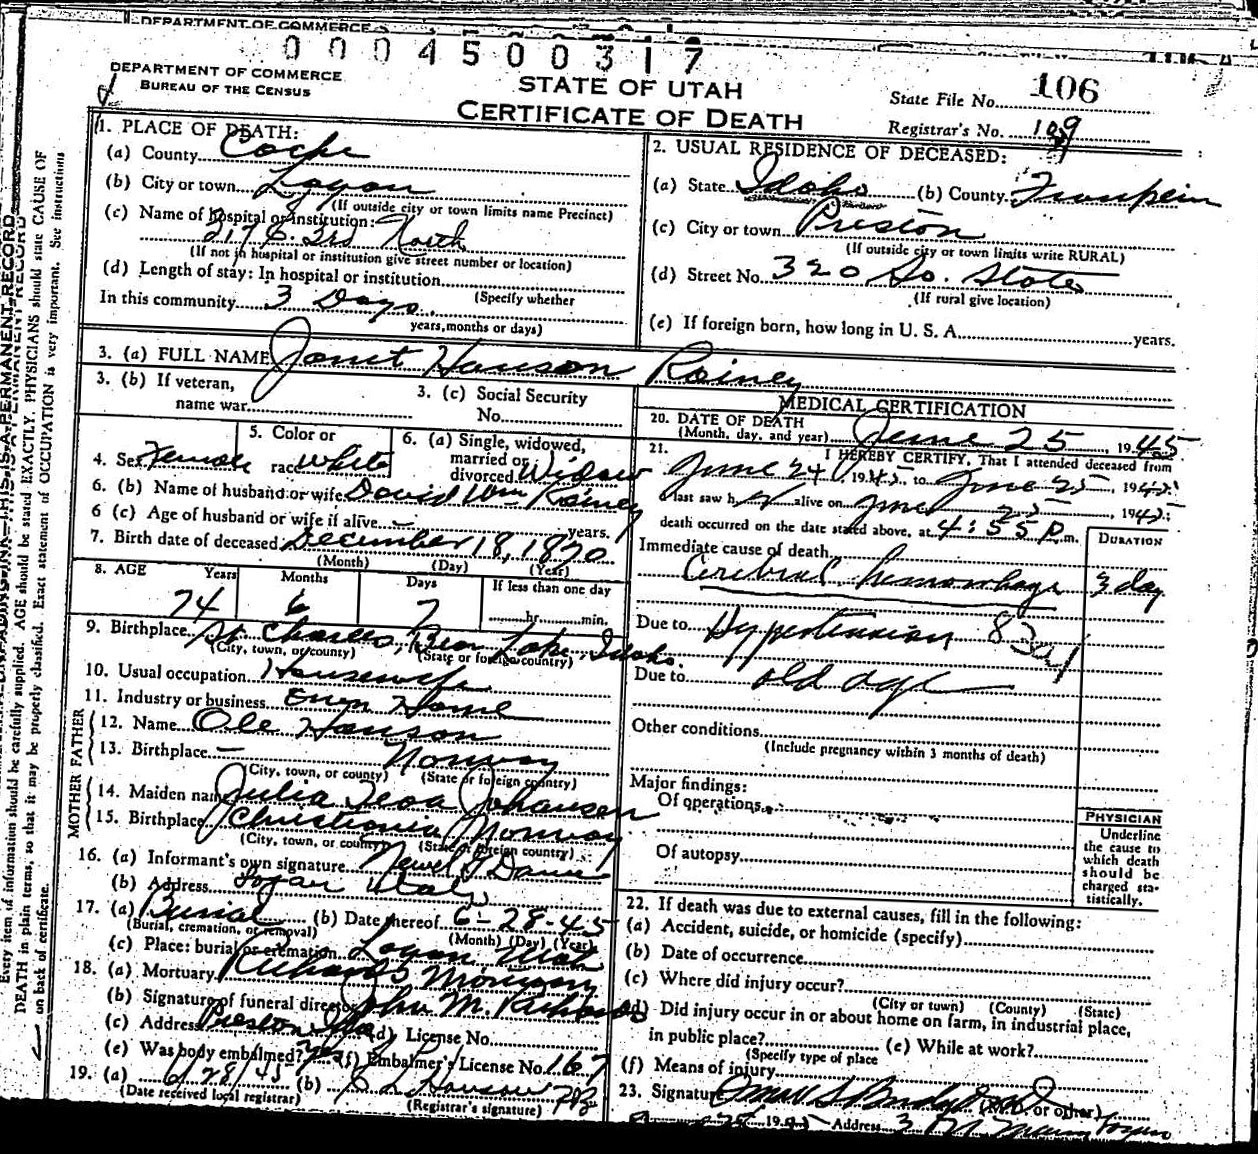 DEPARTMENT OF COMMERCE
0004500317
DEPARTMENT OF COMMERCE
BUREAU OF THE CENSUS
STATE OF UTAH
CERTIFICATE OF DEATH
State File No. 106
Registrar's No. 109
1. PLACE OF DEATH:
(a) County Cache
(b) City or town Logan
(If outside city or town limits name Precinct)
(c) Name of hospital or institution:
217 E. 3rd North
(If not in hospital or institution give street number or location)
(d) Length of stay: In hospital or institution
(Specify whether
In this community 3 Days
years, months or days)
2. USUAL RESIDENCE OF DECEASED:
(a) State Idaho (b) County
(c) City or town Preston
(If outside city or town limits write RURAL)
(d) Street No. 320 So. State
(If rural give location)
(e) If foreign born, how long in U. S. A. years.
3. (a) FULL NAME Janet Hanson Rainey
3. (b) If veteran,
name war
3. (c) Social Security
No.
4. Sex Female
5. Color or
race White
6. (a) Single, widowed,
married or
divorced Widow
6. (b) Name of husband or wife David Wm Rainey
6 (c) Age of husband or wife if alive — years.
7. Birth date of deceased December 18, 1870
(Month) (Day) (Year)
8. AGE Years Months Days If less than one day
74 6 7 hr. min.
9. Birthplace St. Charles, Bear Lake, Idaho.
(City, town, or county) (State or foreign country)
10. Usual occupation Housewife
11. Industry or business Own Home
FATHER
12. Name Ole Hanson
13. Birthplace — Norway
(City, town, or county) (State or foreign country)
MOTHER
14. Maiden name Julia Johansen
15. Birthplace Christiania Norway
(City, town, or county) (State or foreign country)
16. (a) Informant's own signature Newel
(b) Address Logan Utah
17. (a) Burial (b) Date thereof 6-28-45
(Burial, cremation, or removal) (Month) (Day) (Year)
(c) Place: burial or cremation Logan Utah
18. (a) Mortuary Richards Mortuary
(b) Signature of funeral director John M. Richards
(c) Address Preston Ida (d) License No.
(e) Was body embalmed? Yes (f) Embalmer's License No. 167
19. (a) 6/28/45 (b) Hanson 783
(Date received local registrar) (Registrar's signature)
MEDICAL CERTIFICATION
20. DATE OF DEATH
(Month, day, and year) June 25, 1945
21. I HEREBY CERTIFY, That I attended deceased from
June 24, 1945, to June 25, 1945
last saw h alive on June 25, 1945;
death occurred on the date stated above, at 4:55 P.m.
DURATION
Immediate cause of death
Cerebral hemorrhage 3 day
Due to Hypertension
Due to old age
Other conditions
(Include pregnancy within 3 months of death)
Major findings:
Of operations
Of autopsy
PHYSICIAN
Underline
the cause to
which death
should be
charged sta-
tistically.
22. If death was due to external causes, fill in the following:
(a) Accident, suicide, or homicide (specify)
(b) Date of occurrence
(c) Where did injury occur?
(City or town) (County) (State)
(d) Did injury occur in or about home on farm, in industrial place,
in public place? (e) While at work?
(Specify type of place
(f) Means of injury
23. Signature Omar S Budge (M.D. or other)
1945 Address
Every item of information should be carefully supplied. AGE should be stated EXACTLY. PHYSICIANS should state CAUSE OF
DEATH in plain terms, so that it may be properly classified. Exact statement of OCCUPATION is very important. See instructions
on back of certificate.